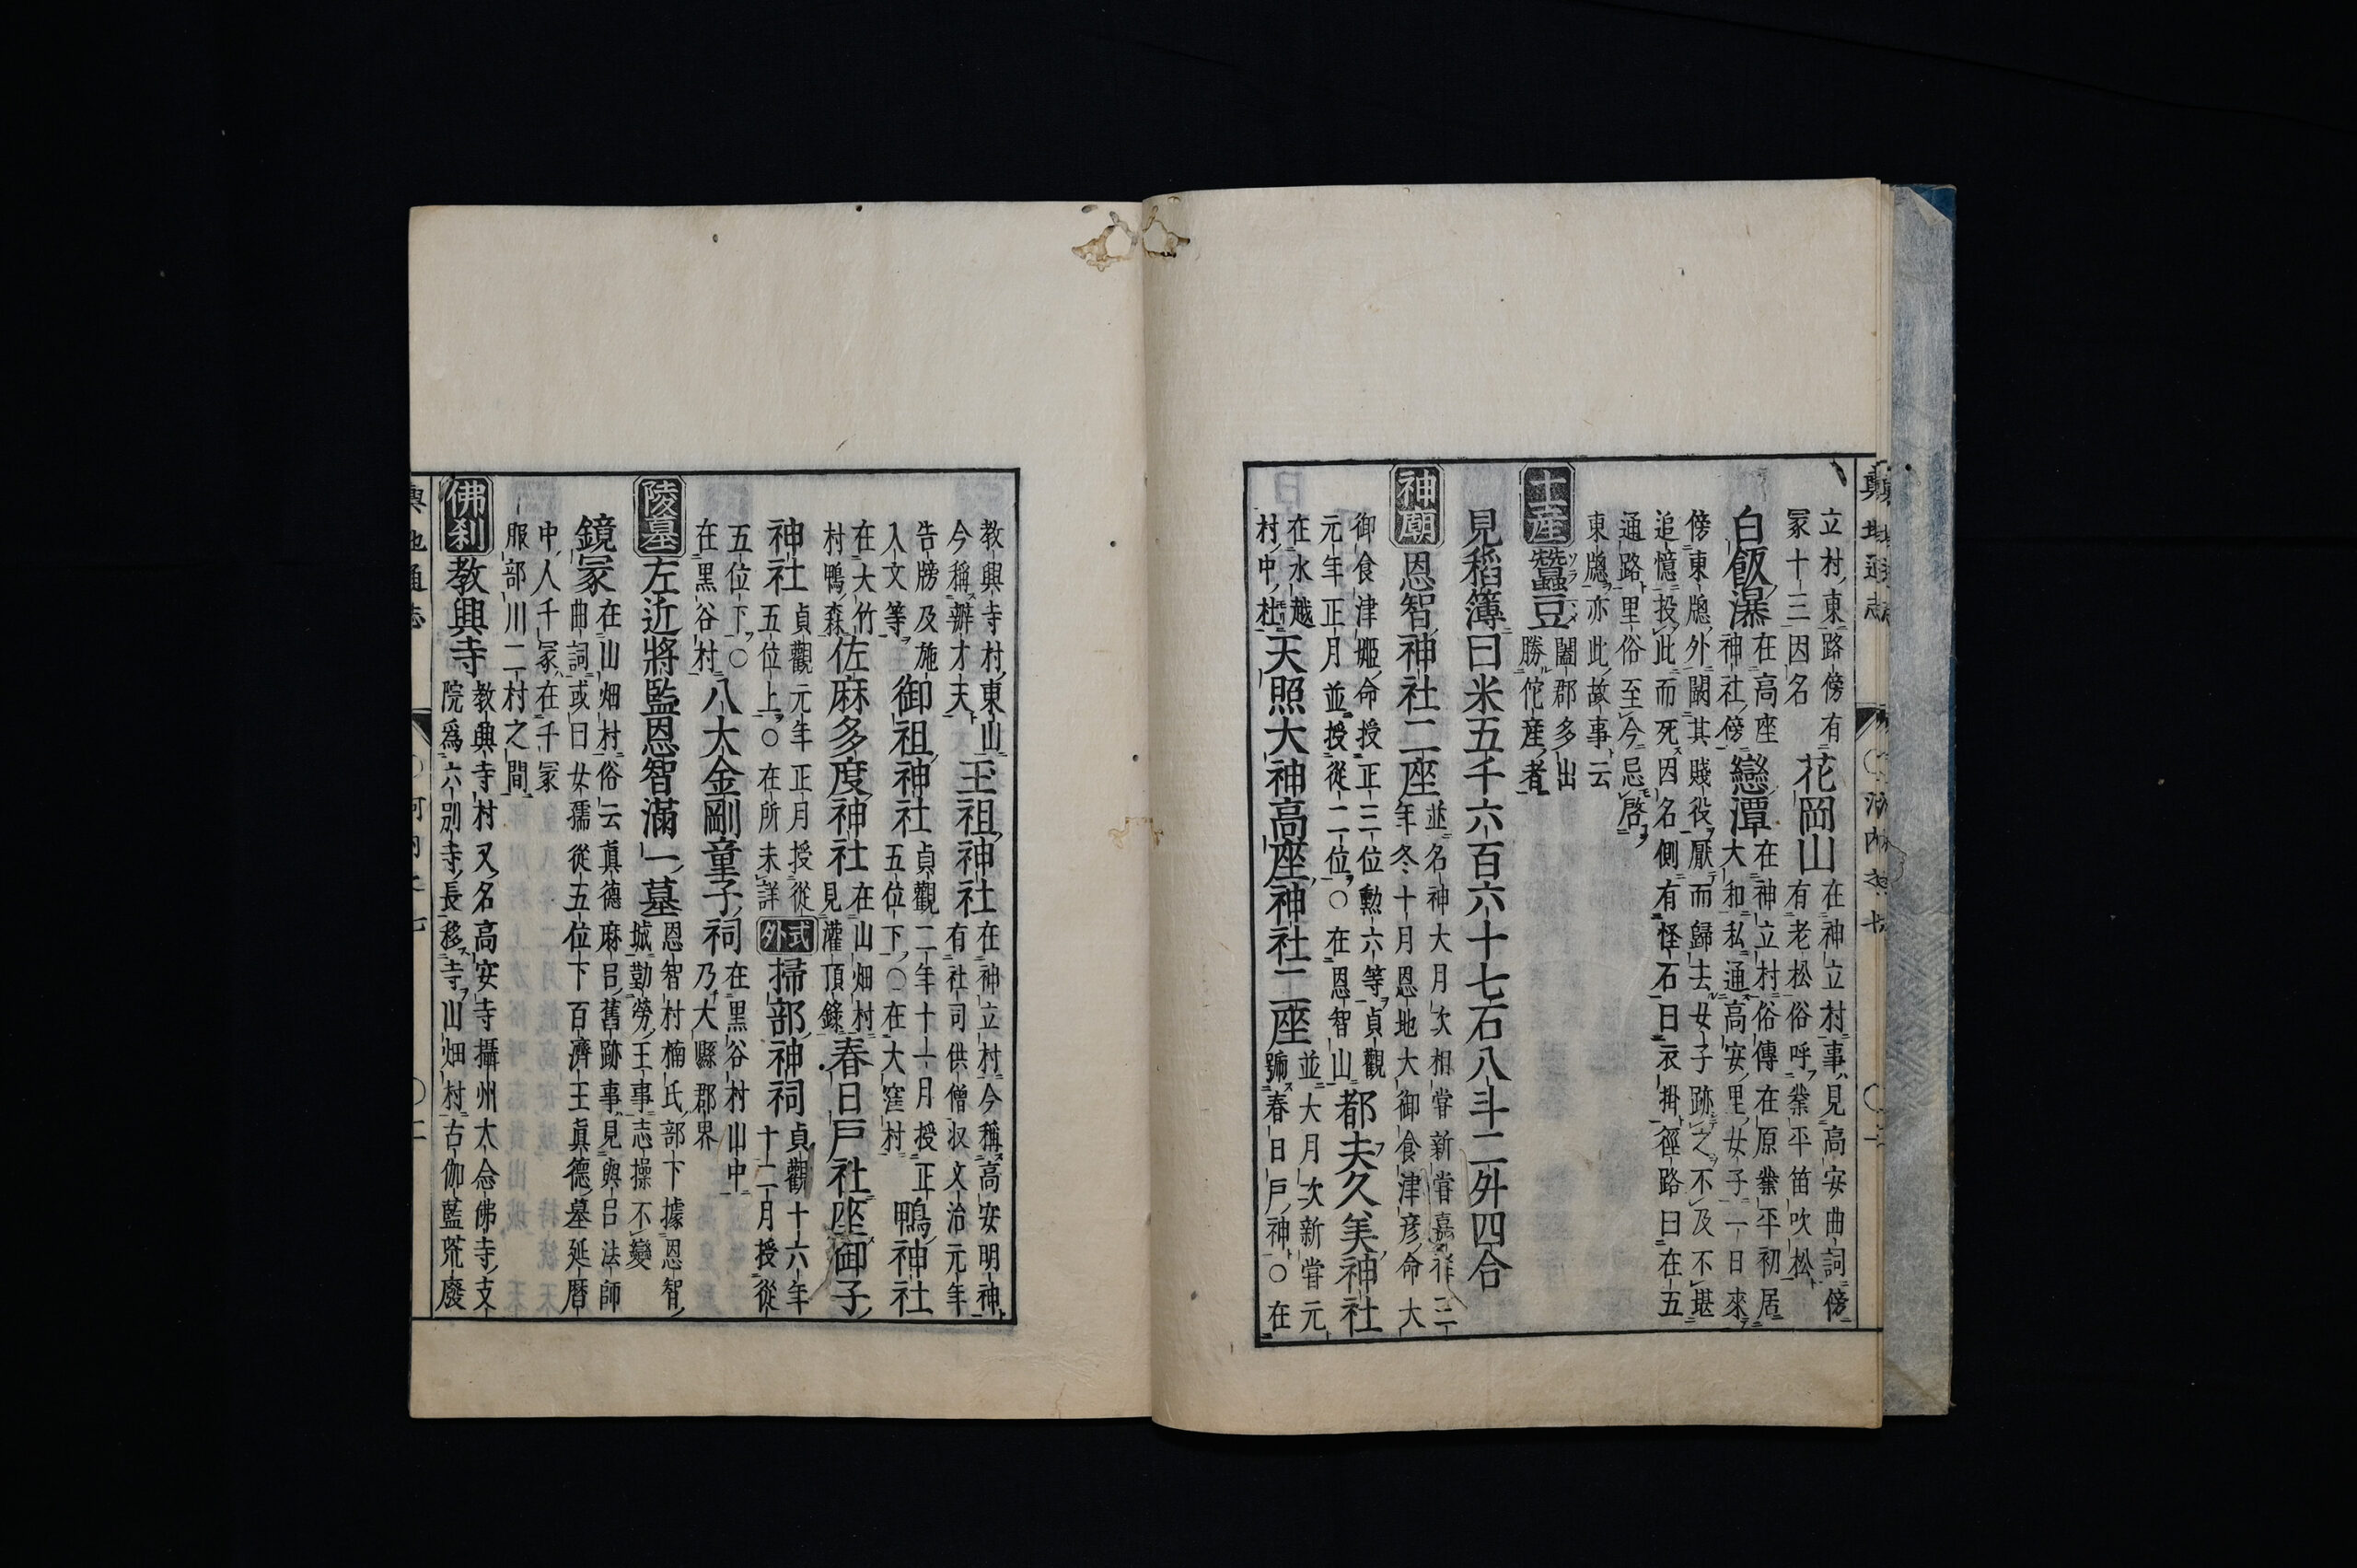 立村東路傍有
冢十三因名
花岡山
在神立村事見高安曲詞傍
有老松俗呼業平笛吹松
白飯瀑
在高座
神社傍
戀潭
在神立村俗傳在原業平初居
大和私通高安里女子一日來
傍東牕外闚其賤役厭而歸去女子跡之不及不堪
追憶投此而死因名側有怪石曰衣掛徑路曰在五
通路里俗至今忌啓
東牕亦此故事云
土産
蠶豆
闔郡多出
勝佗産者
見稻簿曰米五千六百六十七石八斗二外四合
神廟
恩智神社二座
並名神大月次相嘗新嘗嘉祥三
年冬十月恩地大御食津彦命大
御食津姬命授正三位勳六等貞觀
元年正月並授從二位○在恩智山
都夫久美神社
在水越
村中杜
天照大神高座神社二座
並大月次新嘗元
號春日戶神○在
教興寺村東山
今稱辦才天
玉祖神社
在神立村今稱高安明神
有社司供僧收文治元年
告牓及施
入文等
御祖神社
貞觀二年十一月授正
五位下○在大窪村
鴨神社
在大竹
村鴨森
佐麻多度神社
在山畑村
見灌頂錄
春日戶社座御子
神社
貞觀元年正月授從
五位上○在所未詳
式外
掃部神祠
貞觀十六年
十二月授從
五位下○
在黑谷村
八大金剛童子祠
在黑谷村山中
乃大縣郡界
陵墓
左近將監恩智滿一墓
恩智村楠氏部下據恩智
城勤勞王事志操不變
鏡冢
在山畑村俗云真德麻呂舊跡事見與呂法師
曲詞或曰女孺從五位下百濟王眞德墓延曆
中人千冢在千冢
服部川二村之間
佛刹
教興寺
教興寺村又名高安寺攝州大念佛寺支
院爲六別寺長移寺山畑村古伽藍荒廢